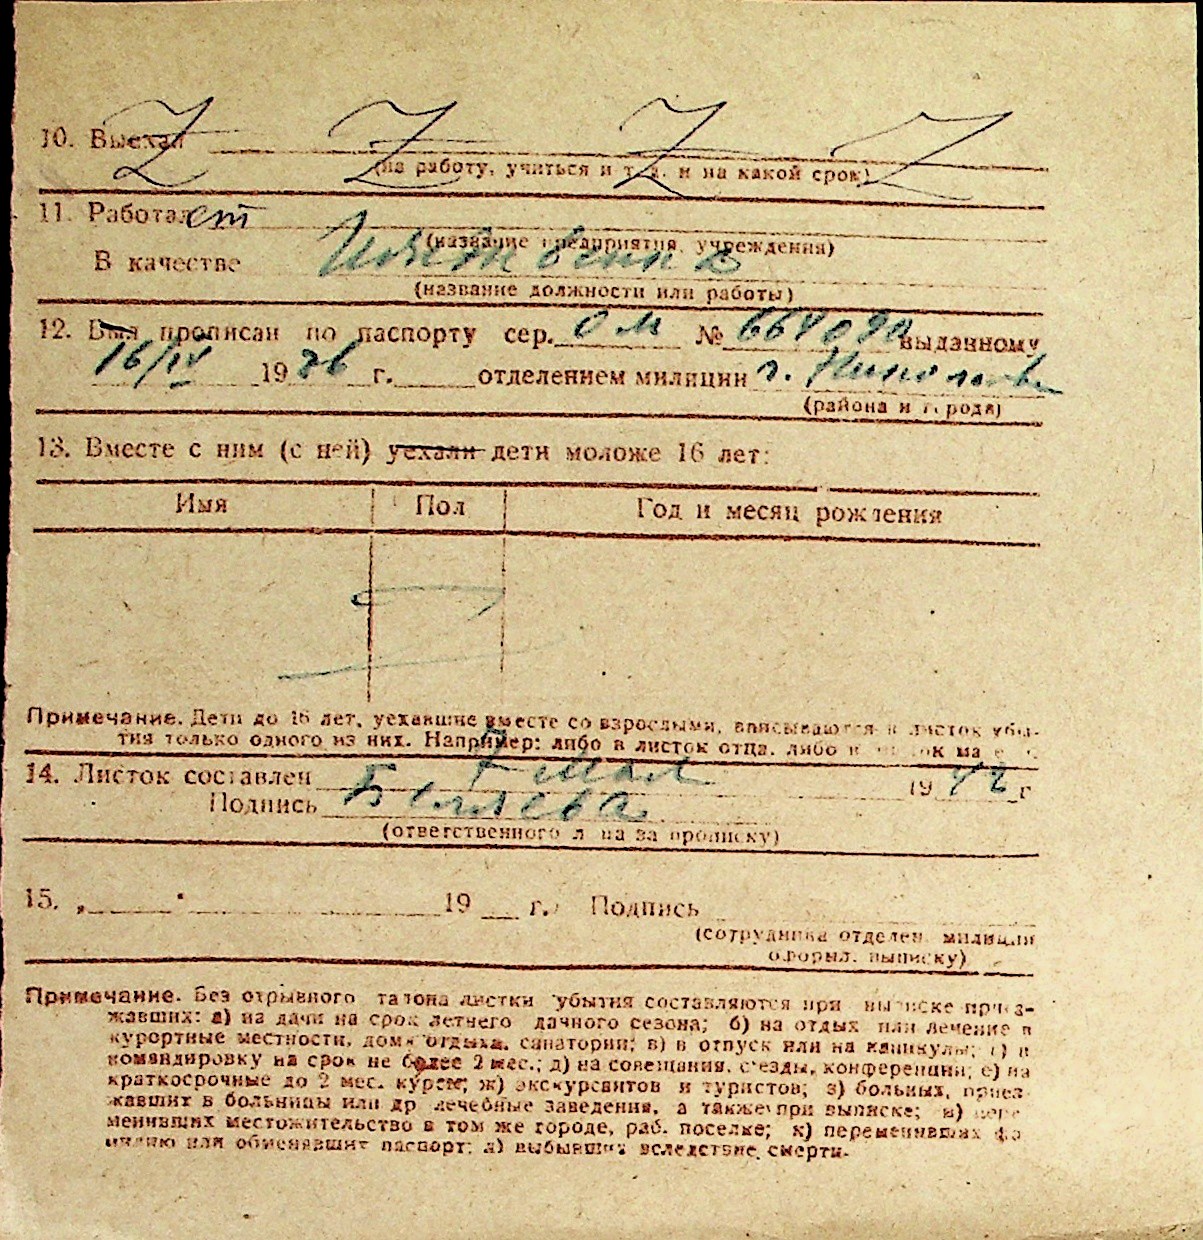 10. Выехал
(на работу, учиться и т. д. и на какой срок)
11. Работает
(название предприятия, учреждения)
В качестве Иждивенка
(название должности или работы)
12. Был прописан по паспорту сер. ОМ № выданному
16/IV 1936 г. отделением милиции г.
(района и города)
13. Вместе с ним (с ней) уехали дети моложе 16 лет:
Имя Пол Год и месяц рождения
Примечание. Дети до 16 лет, уехавшие вместе со взрослыми, вписываются в листок убы-
тия только одного из них. Например: либо в листок отца, либо в листок матери.
14. Листок составлен 7 мая 19 42 г
Подпись Беляева
(ответственного лица за прописку)
15. „ “ 19 г. Подпись
(сотрудника отделен. милиции
оформл. выписку)
Примечание. Без отрывного талона листки убытия составляются при выписке приез-
жавших: а) на дачи на срок летнего дачного сезона; б) на отдых или лечение в
курортные местности, дома отдыха, санатории; в) в отпуск или на каникулы; г) в
командировку на срок не более 2 мес.; д) на совещания, съезды, конференции; е) на
краткосрочные до 2 мес. курсы; ж) экскурсантов и туристов; з) больных, приез-
жавших в больницы или др лечебные заведения, а также при выписке; и) пере-
менивших местожительство в том же городе, раб. поселке; к) переменивших фа-
милию или обменявших паспорт; л) выбывших вследствие смерти.